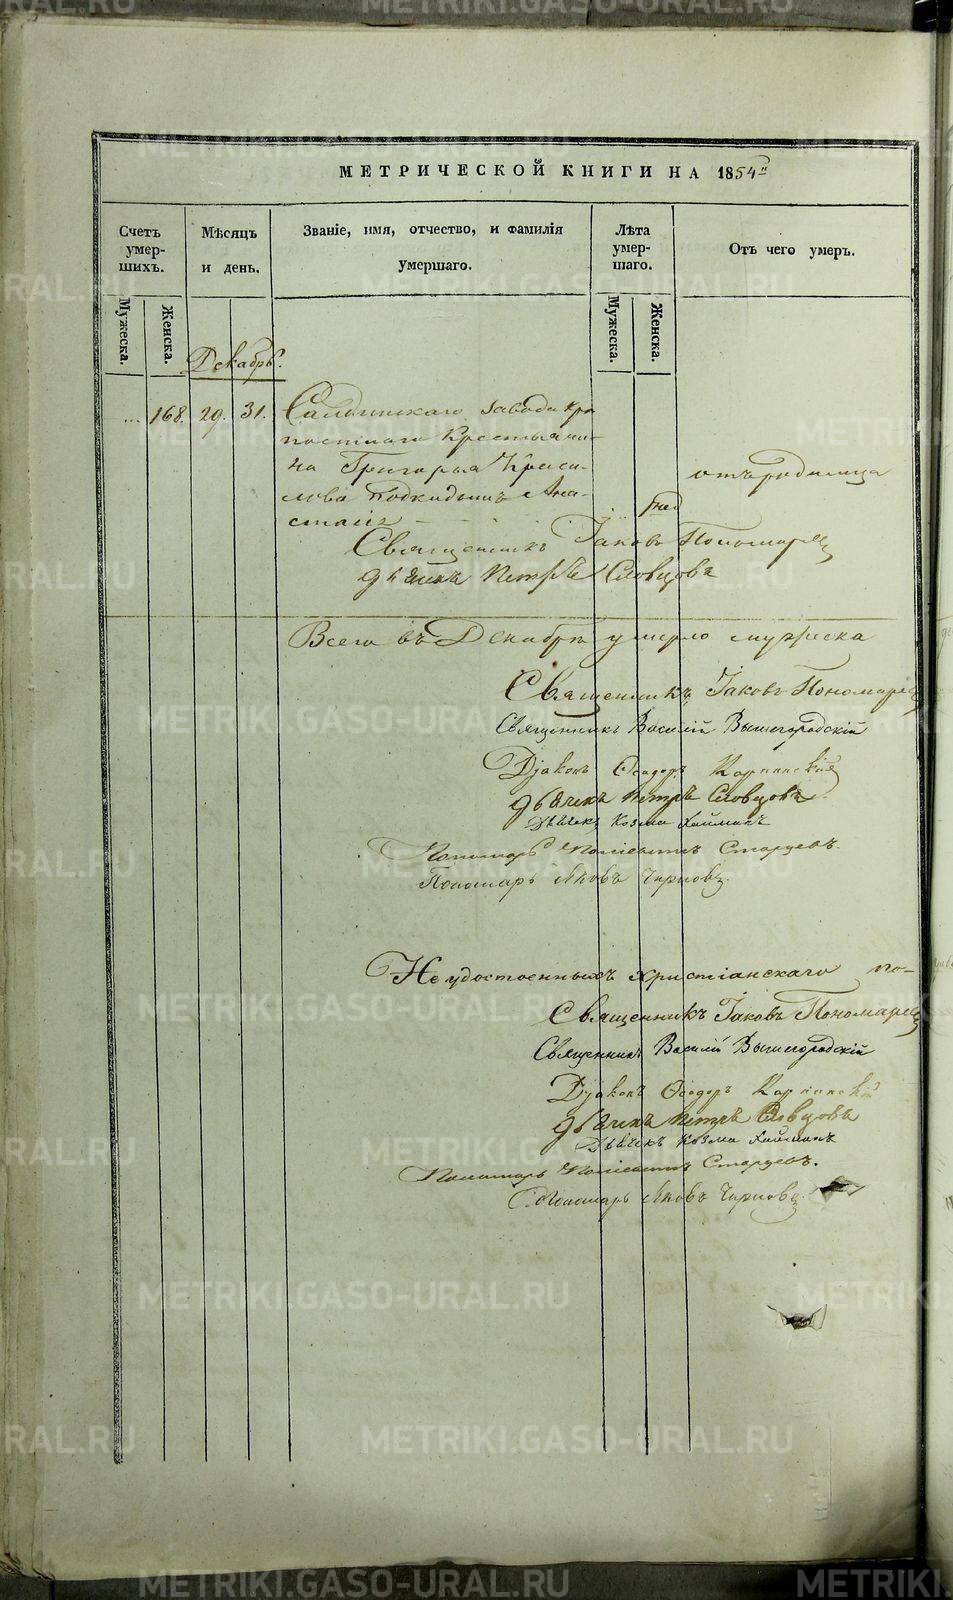 МЕТРИЧЕСКОЙ КНИГИ НА 1854й
Счетъ умерших. Мѣсяцъ и день. Званіе, имя, отчество, и фамилія умершаго. Лѣта умершаго. Отъ чего умеръ.
Мужеска. Женска. Мужеска. Женска.
Декабрь.
... 168. 29. 31. Салдинскаго завода крѣ
постнаго Крестьяни-
на Григорья Краси- отъ родимца
лова подкидышъ Ана-
стасія
Священникъ Іаковъ Пономаревъ
Дьячекъ Петръ Словцовъ
Всего въ Декабрѣ умерло мужеска
Священникъ Іаковъ Пономаревъ
Священникъ Василій Вышегородскій
Діаконъ Ѳеодоръ Карпинскій
Дьячекъ Петръ Словцовъ
Дьячекъ Козма
Пономарь Старцевъ.
Пономарь Яковъ Чирковъ.
Не удостоенныхъ христіанскаго по-
Священникъ Іаковъ Пономаревъ
Священникъ Василій Вышегородскій
Діаконъ Ѳеодоръ Карпинскій
Дьячекъ Петръ Словцовъ
Дьячекъ Козма
Пономарь Старцевъ.
Пономарь Яковъ Чирковъ.
METRIKI.GASO-URAL.RU